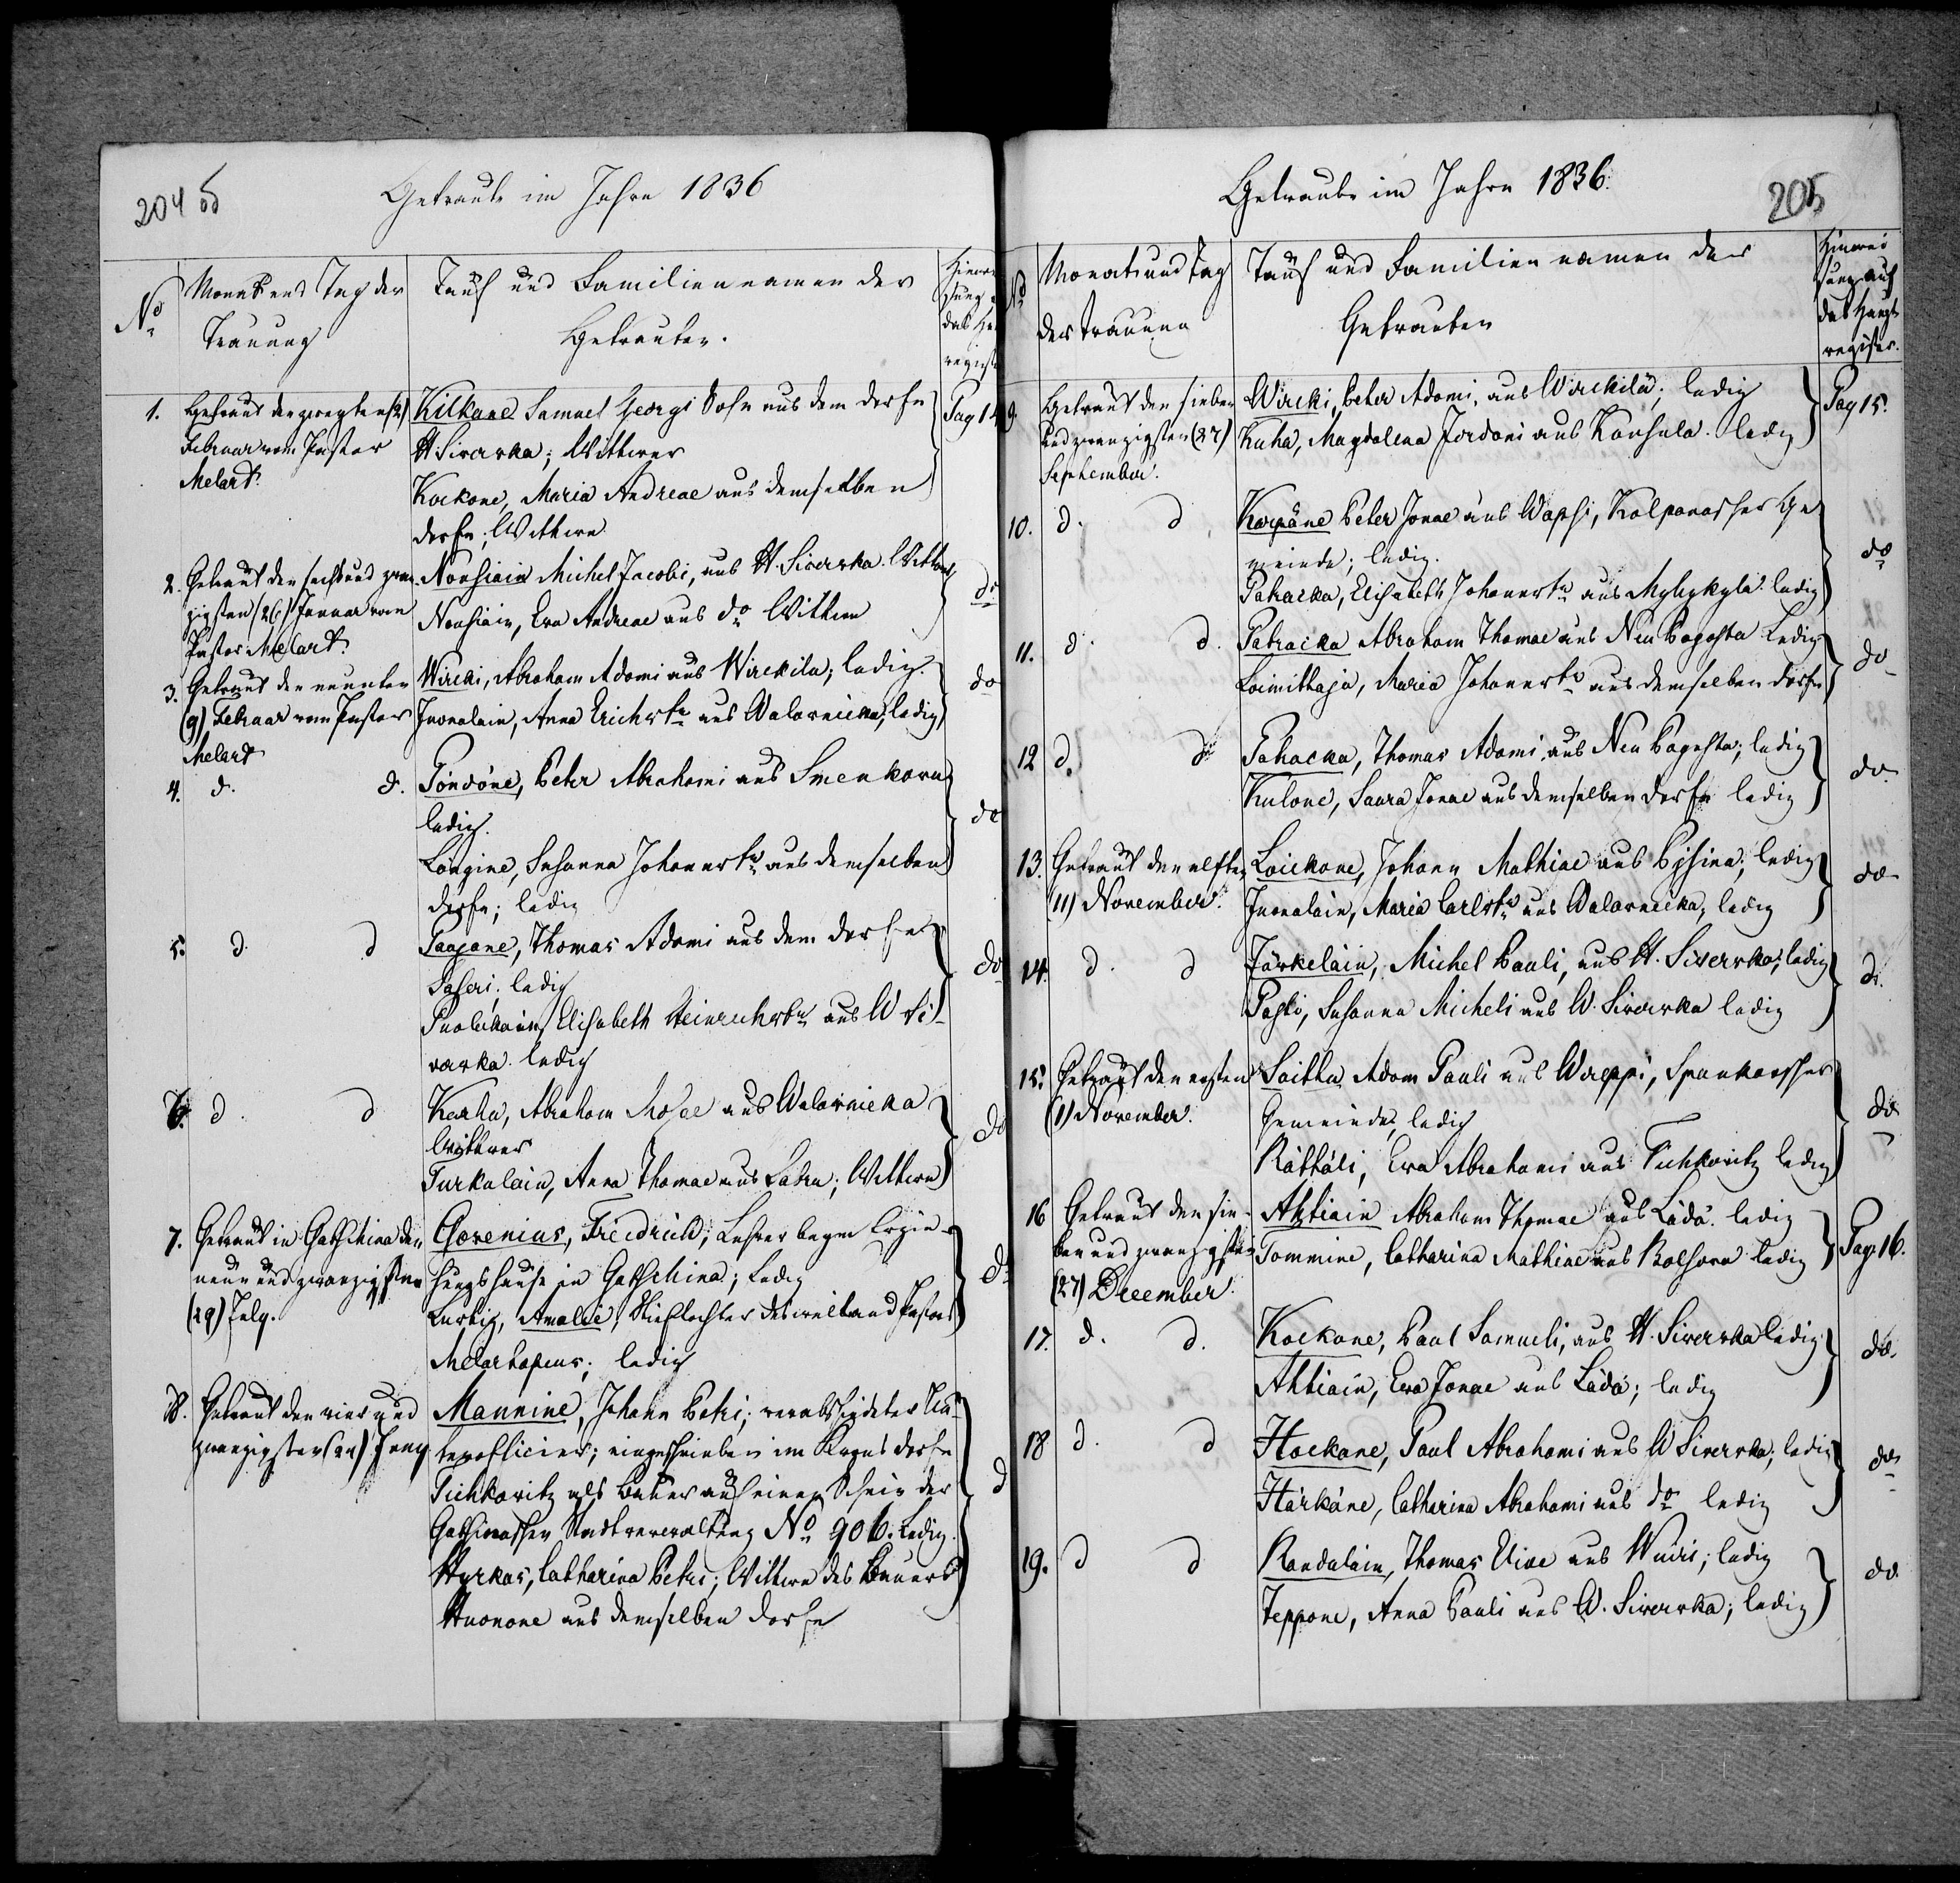 204 b
Getraute im Jahre 1836
No
Monat und Tag der
Trauung
Tauf und Familiennamen der
Getrauten.
1.
Getraut den zweyten (2)
Februar vom Pastor
Melart.
Kilkane Samuel Georgi Sohn aus dem Dorfe
H. Siverska; Wittwer
Kockone, Maria Andreae aus demselben
Dorfe; Wittwe
Pag 14
2.
Getraut den sechsundzwan
zigsten (26) Januar vom
Pastor Melart.
Nousiain Michel Jacobi, aus H. Siverska Wittwer
Nousiain, Eva Andreae aus do Wittwe
do
3.
Getraut den neunten
(9) Februar vom Pastor
Melart
Wircki, Abraham Adami aus Wirckila; ledig.
Inonalain, Anna Erichstr aus Walarnicka; ledig
do
4.
d. d.
Pöndöne, Peter Abrahami aus Smenkowa
ledig.
Longine, Susanna Johannstr aus demselben
Dorfe; ledig
do
5.
d. d
Paajane, Thomas Adami aus dem Dorfe
Saseri; ledig
Puolukain, Elisabeth Heinrichstr aus W Si
varka ledig
do
6.
d. d
Karhu, Abraham Mosae aus Walarnicka
Wittwer
Turkulain, Anna Thomae aus Sabra; Wittwe
do
7.
Getraut in Gatschina den
neun und zwanzigsten
(29) July.
Glovenius, Friedrich; Lehrer beym Erzie-
hungshause in Gatschina; Ledig
Lustig, Amalie, Stieftochter des weiland Pastors
Melartopeus; ledig
d
8.
Getraut den vier und
zwanzigsten (24) Juny
Mannine, Johann Petri; verabschiedeter Un-
teroffizier; eingeschrieben im Krons dorfe
Tichkowitz als Bauer auf einen Schein der
Gatschinaschen Stadtverwaltung No 906. Ledig.
Hyrkas, Catharina Petri; Wittwe des Bauers
Huonone aus demselben Dorfe
d
Getraute im Jahre 1836.
205
No
Monat und Tag
der Trauung
Tauf und Familiennamen der
Getrauten
Hinwei
sung auf
das Haupt
register.
9.
Getraut den sieben
und zwanzigsten (27)
September.
Wircki, Peter Adami, aus Wirckilä; ledig
Kuha, Magdalena Jordani aus Konsula. ledig
Pag 15.
10.
d. d
Karpäne Peter Jonae aus Wapsi, Kolpanascher Ge
meinde; ledig.
Pakacka, Elisabeth Johannstr aus Mylykyla. ledig
do
11.
d. d.
Patracka Abraham Thomae aus Neu Pogosta Ledig
Loimithaja, Maria Johannstr aus demselben Dorfe
do
12
d. d
Pakacka, Thomas Adami aus Neu Pogosta; ledig
Kulone, Saara Jonae aus demselben Dorfe ledig
do.
13.
Getraut den elften
(11) November.
Loickone, Johann Mathiae aus Pisina; ledig
Inonalain, Maria Carlstr aus Walarnicka, ledig
do
14.
d. d
Järkelain, Michel Pauli, aus H. Siverska; ledig
Posti, Susanna Micheli aus W. Siverska ledig
d.
15.
Getraut den ersten
(1) November.
Saittu Adam Pauli aus Wareppi, Spankascher
Gemeinde, ledig
Rättäli, Eva Abrahami aus Tichkowitz ledig
do
16
Getraut den sie-
ben und zwanzigsten
(27) December.
Ahtiain Abraham Thomae aus Lädä. ledig
Tommine, Catharina Mathiae aus Rotsowa ledig
Pag. 16.
17.
d. d.
Kockone, Paul Samueli, aus H. Siverska ledig
Ahtiain, Eva Jonae aus Lädä; ledig
do.
18
d. d
Hockane, Paul Abrahami aus W Siverska; ledig
Härkäne, Catharina Abrahami aus do ledig
do
19.
d d
Randulain, Thomas Eliae aus Wuiri; ledig
Teppone, Anna Pauli aus W. Siverska; ledig
do.